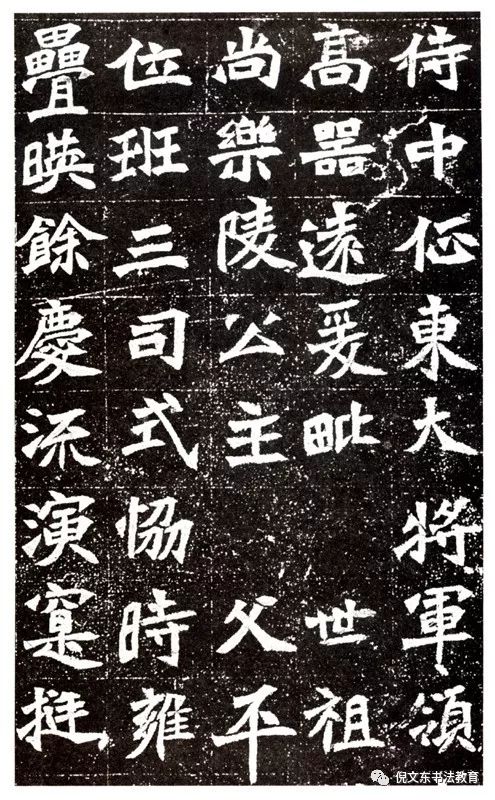 侍中佂東大將軍領
高器遠爰毗世祖
尚樂陵公主父平
位班三司式恊時雍
疊暎餘慶流演寔挺
倪文东书法教育